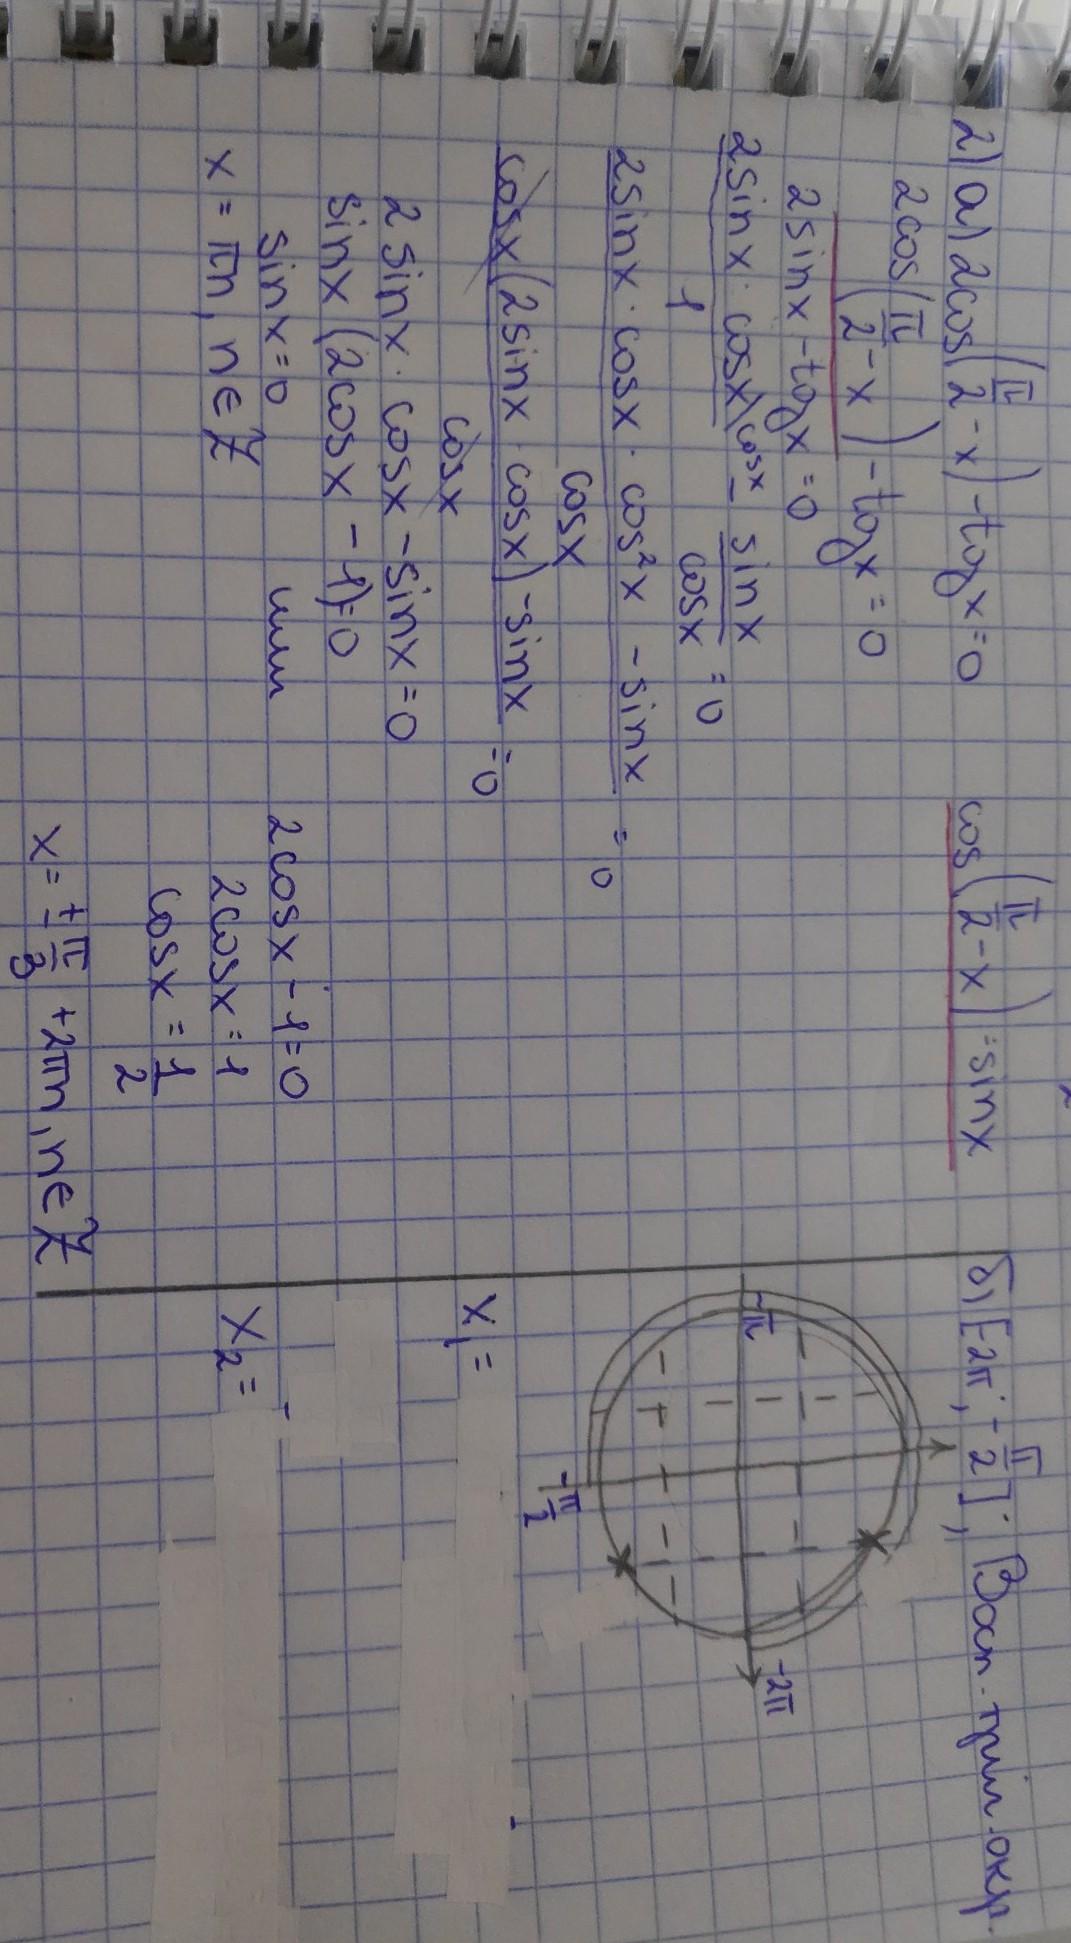 2) а) 2cos(π/2 - x) - tgx = 0
cos(π/2 - x) = sinx
2cos(π/2 - x) - tgx = 0
2sinx - tgx = 0
2sinx · cosx/1 \cosx - sinx/cosx = 0
2sinx · cosx · cos²x - sinx/cosx = 0
cosx(2sinx · cosx) - sinx/cosx = 0
2 sinx · cosx - sinx = 0
sinx (2cosx - 1) = 0
sinx = 0 или 2cosx - 1 = 0
x = πn, n ∈ Z
2cosx = 1
cosx = 1/2
x = ± π/3 + 2πn, n ∈ Z
б) [-2π; -π/2]; Восп. триг. окр.
-π
-2π
-π/2
x₁ =
x₂ =